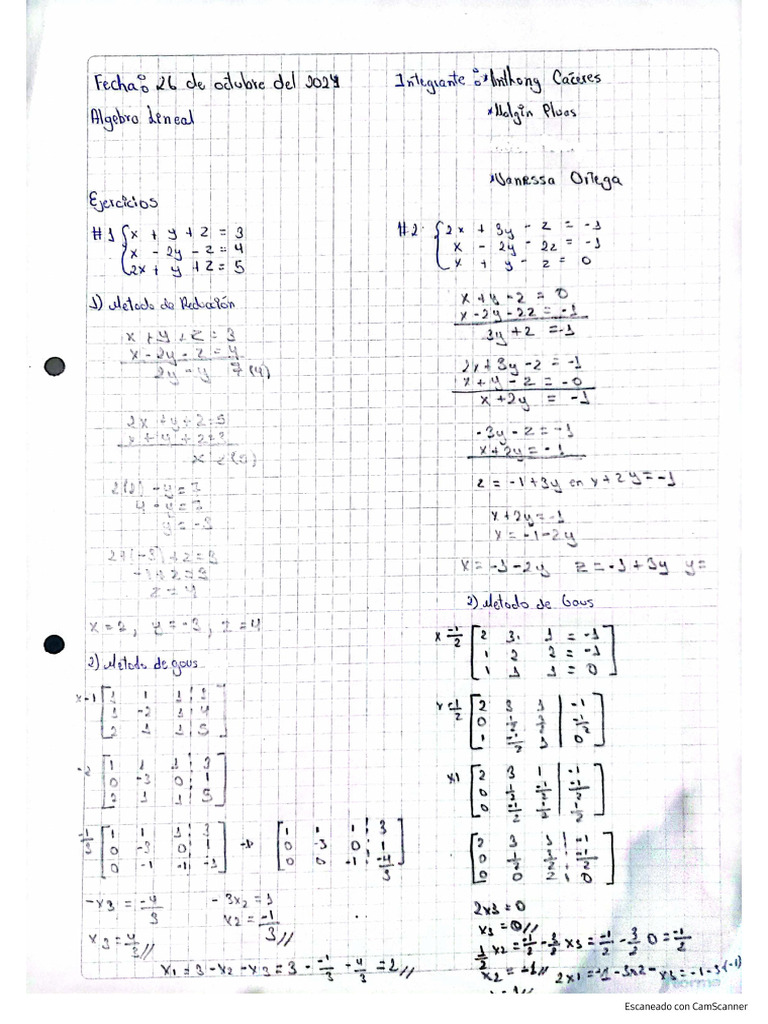 Fecha: 26 de octubre del 2024
Algebra Lineal
Integrante: * Anthony Cáceres
* Holgin Pluas
* Vanessa Ortega
Ejercicios
#1 { x + y + z = 3
x - 2y - z = 4
2x + y + z = 5
1) Metodo de Reducción
x + y + z = 3
x - 2y - z = 4
2x + y + z = 5
x + y + z = 3
4 - y = 7
y = -3
2+(-3)+z=3
-1+z=3
z=4
x=2, y=-3, z=4
2) Metodo de gaus
x-1 [ 1 1 1 | 3
1 -2 1 4
2 1 1 | 5 ]
-2 [ 1 1 1 | 3
0 -3 0 | 1
2 1 1 | 5 ]
-1/3 [ 1 1 1 | 3
0 -3 0 | 1
0 -1 -1 | -1 ]
[ 1 1 1 | 3
0 -3 0 | 1
0 0 -1 | -4/3 ]
-x3 = -4/3
x3 = 4/3 //
-3x2 = 1
x2 = -1/3 //
x1 = 3 - x2 - x3 = 3 - -1/3 - 4/3 = 2 //
#2 { 2x + 3y - z = -1
x - 2y - 2z = -1
x + y - z = 0
x + y - z = 0
x - 2y - 2z = -1
3y + z = -1
2x + 3y - z = -1
x + y - z = -0
x + 2y = -1
-3y - z = -1
x + 2y = -1
z = -1+3y en x+2y=-1
x+2y=-1
x=-1-2y
x=-1-2y z=-1+3y y=
2) Metodo de Gaus
x -1/2 [ 2 3 1 = -1
1 2 2 = -1
1 1 1 = 0 ]
x -1/2 [ 2 3 1 | -1
0 1/2 3/2 | -1/2
1 -1/2 1 | 0 ]
x1 [ 2 3 1 | -1
0 1/2 3/2 | -1/2
0 -1/2 -1/2 | -1/2 ]
[ 2 3 1 | -1
0 1/2 3/2 | -1/2
0 0 2 | 0 ]
2x3 = 0
x3 = 0 //
1/2 x2 = -1/2 - 3/2 x3 = -1/2 - 3/2 0 = -1/2
x2 = -1 // 2x1 = -1 - 3x2 - x3 = -1 - 3(-1)
norma
Escaneado con CamScanner